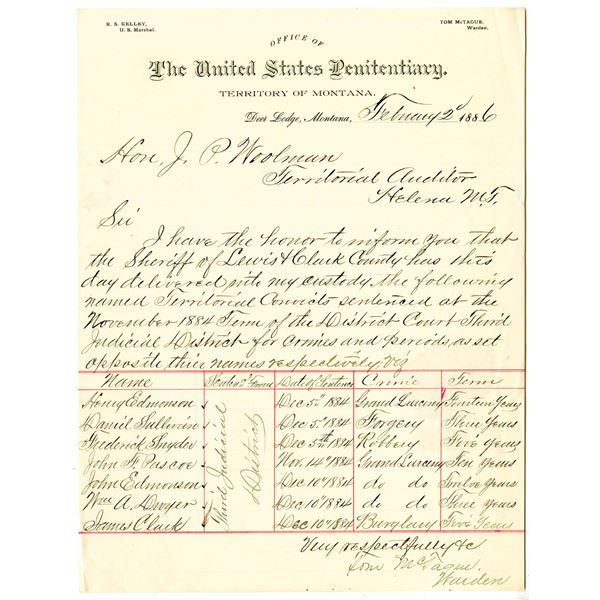 R. S. KELLEY,
U. S. Marshal.
TOM McTAGUE,
Warden.
OFFICE OF
The United States Penitentiary.
TERRITORY OF MONTANA.
Deer Lodge, Montana, February 2d 1886
Hon. J. P. Woolman
Territorial Auditor
Helena M.T.
Sir
I have the honor to inform you that
the Sheriff of Lewis & Clark County has this
day delivered into my custody the following
named Territorial Convicts sentenced at the
November 1884 Term of the District Court Third
Judicial District for crimes and periods, as set
opposite their names respectively. Viz
Name Date of Sentence Crime Term
Henry Edmonson Dec 5" 1884 Grand Larceny Fourteen Years
Daniel Sullivan Dec 5" 1884 Forgery Three Years
Frederick Snyder Dec 5th 1884 Robbery Five Years
John F. Pascoe Nov. 14" 1884 Grand Larceny Ten Years
John Edmonson Dec 10" 1884 do do Twelve Years
Wm A. Dwyer Dec 10" 1884 do do Three Years
James Clark Dec 10" 1884 Burglary Five Years
Third Judicial
District
Very respectfully &c
Tom McTague
Warden